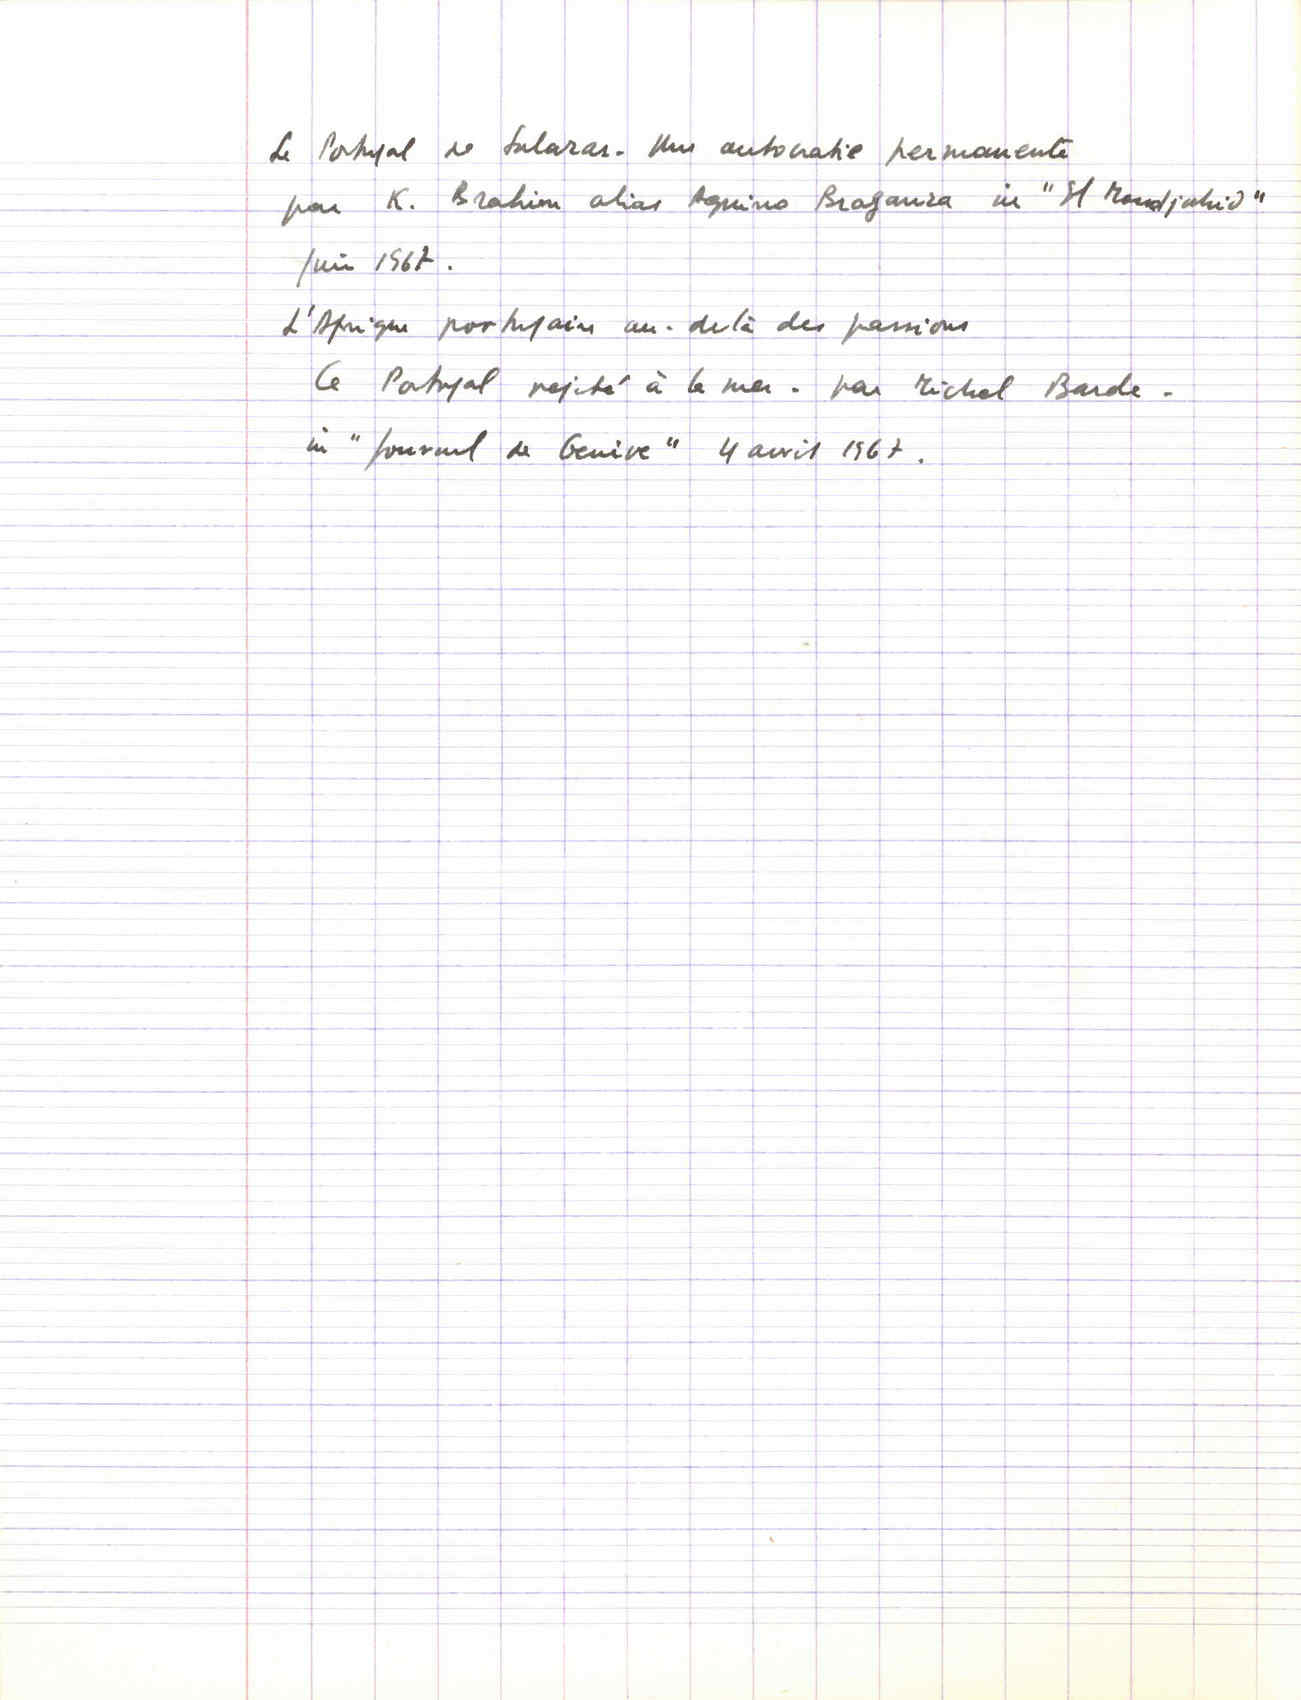 Le Portugal de Salazar. Une autocratie permanente
par K. Brahim alias Aquino Braganza in "El Moudjahid"
Juin 1967.
L'Afrique portugaise au-delà des passions
Ce Portugal rejeté à la mer. par Michel Barde.
in "Journal de Genève" 4 avril 1967.